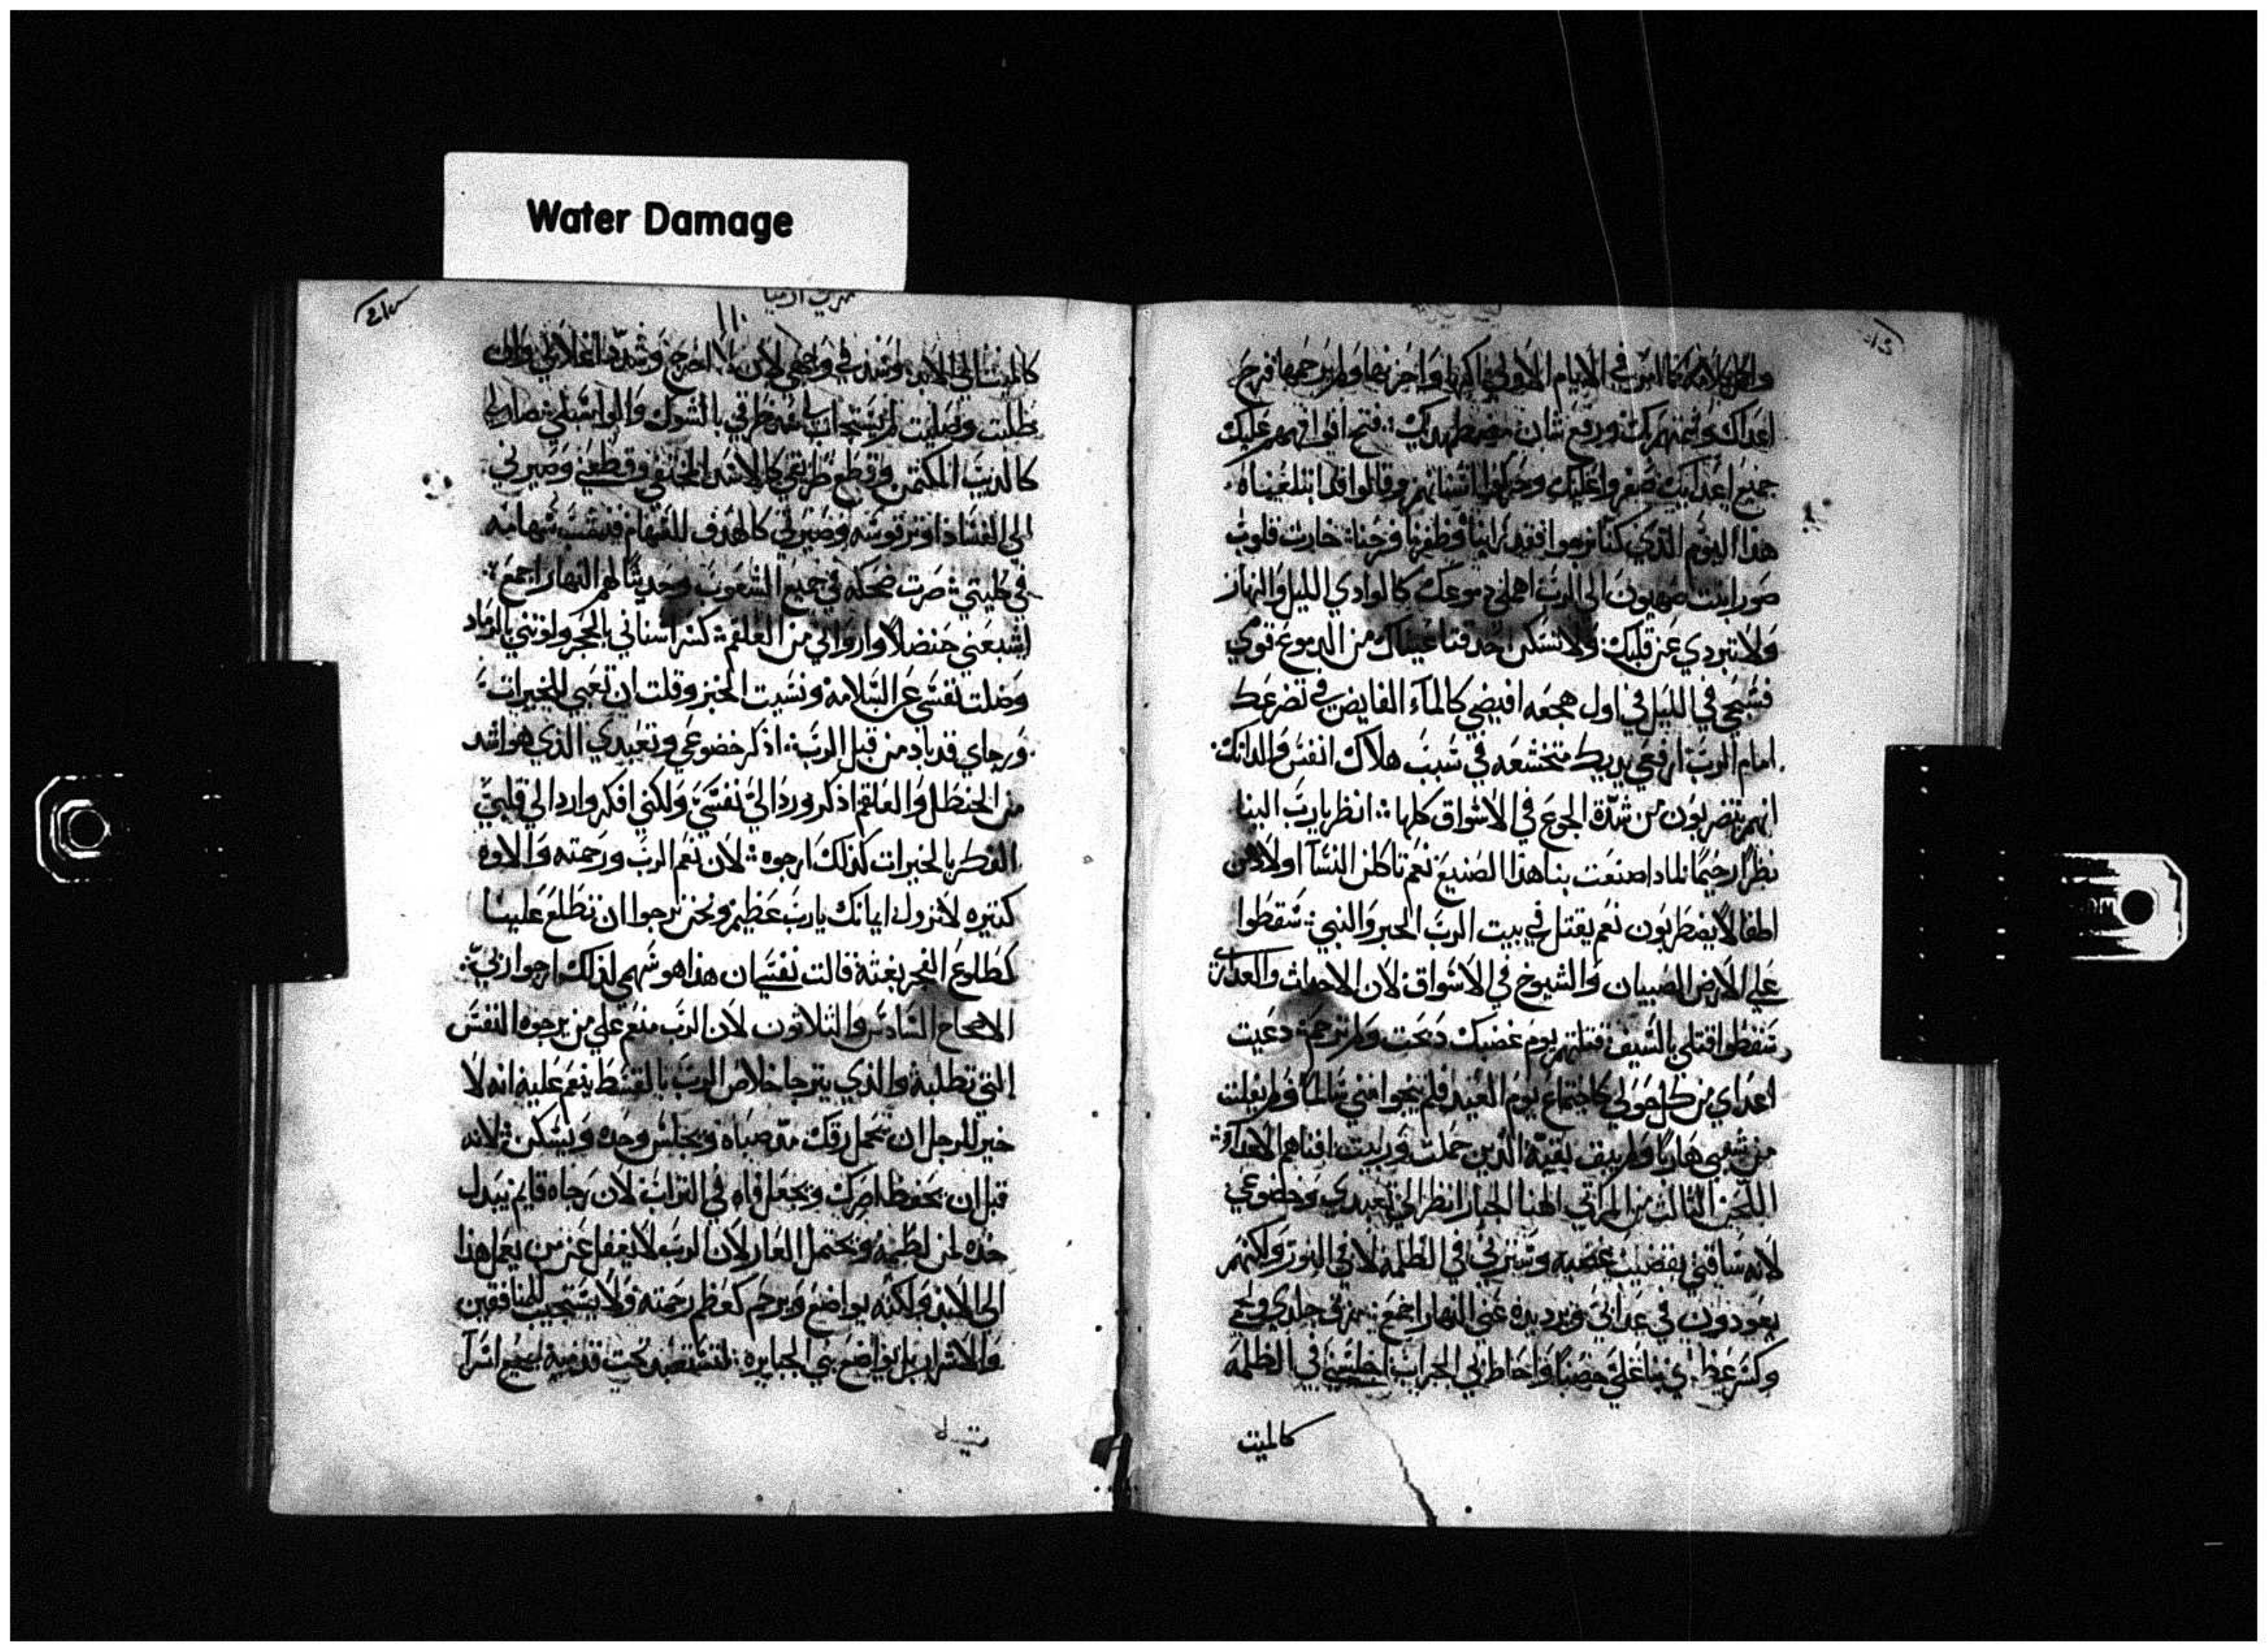 Water Damage
في الايام الاولي
اعداك ورفع شان مضطهديك فتح افواههم عليك
جميع اعدايك صفروا عليك وقالوا قد ابتلعناه
هذا اليوم الذي كنا نرجوا فقد راينا وظفرنا وفرحنا خارت قلوب
صور ابنت صهيون الي الرب اهملي دموعك كالوادي الليل والنهار
ولا تبردي عن قلبك ولا تسكن حدقتا عيناك من الدموع قومي
فسبحي في الليل في اول هجعه افيضي كالماء الفايض في تضرعك
امام الرب ارفعي يديك متخشعه في سبب هلاك انفس والدانك
انهم يتضربون من شدة الجوع في الاسواق كلها انظر يا رب الينا
نظرا رحيما لماذا صنعت بنا هذا الصنيع نعم تاكلن النسا اولادهن
اطفالا يضطربون نعم يقتل في بيت الرب الحبر والنبي سقطوا
علي الارض الصبيان والشيوخ في الاسواق لان الاحداث والعداري
سقطوا قتلي بالسيف قتلتهم يوم غضبك ذبحت ولم ترحم دعيت
اعداي من كل حولي كاجتماع يوم العيد فلم ينجوا مني سالما ولم يفلت
من شعبي هاربا ولم يبق بقية الذين حملت وربيت افناهم الاعدا
اللحن الثالث من المراتي الهنا الجبار انظر الي تعبدي وخضوعي
لانه ساقني بقضيب غضبه وسيرني في الظلمه لا في النور ولكنهم
يعودون في عدابي ويرد يده عني النهار اجمع في جلدي ولحمي
وكسر عظامي بنا علي حصنا واحاط بي الخراب اجلسني في الظلمه
كالميت
كالميت الي الابد وسد في وجهي لان لا اخرج وشدد اغلالي وان
طلبت وصليت لم يستجاب لي بالشوك
كالديب المكتمن وقطع طريقي كالاسد المختفي وقطعني وصيرني
الي الفساد اوتر قوسه وصيرني كالهدف للسهام فنقب سهامه
في كليتي صرت ضحكه في جميع الشعوب وحديثا لهم النهار اجمع
اشبعني حنضلا وارواني من العلقم كسر اسناني بالحجر وافزتني بالرماد
وضلت نفسي عن السلامه ونسيت الخبز وقلت ان تعبي للخيرات
ورجاي قد باد من قبل الرب اذكر خضوعي وتعبدي الذي هو اشد
من الحنظل والعلقم اذكر ورد الي نفسي ولكني افكر وارد الي قلبي
النظر بالخيرات كذلك ارجوه لان نعم الرب ورحمته والاوه
كتيره لا تزول ايمانك يا رب عظيم ونحن نرجوا ان تطلع علينا
كطلوع الفجر بغتة قالت نفسي ان هذا هو سهمي لذلك ارجوا ربي
الاصحاح السادس والثلاثون لان الرب منعم علي من يرجوه النفس
التي تطلبه والذي يترجا خلاص الرب بالقسط ينعم عليه انه لا
خير للرجل ان يحمل رقك منذ صباه ويجلس وحده ويسكن لانه
قبل ان يحفظ اصرك ويجعل فاه في التراب لان رجاه قايم يبدل
خده لمن لطمه ويحتمل العار لان الرب لا يغفل عن من يعمل هذا
الي الابد ولكنه يواضع ويرحم كعظم رحمته ولا يستجيب للمنافقين
والاشرار بل يواضع بني الجبابره تحت قدميه لجميع اسرا